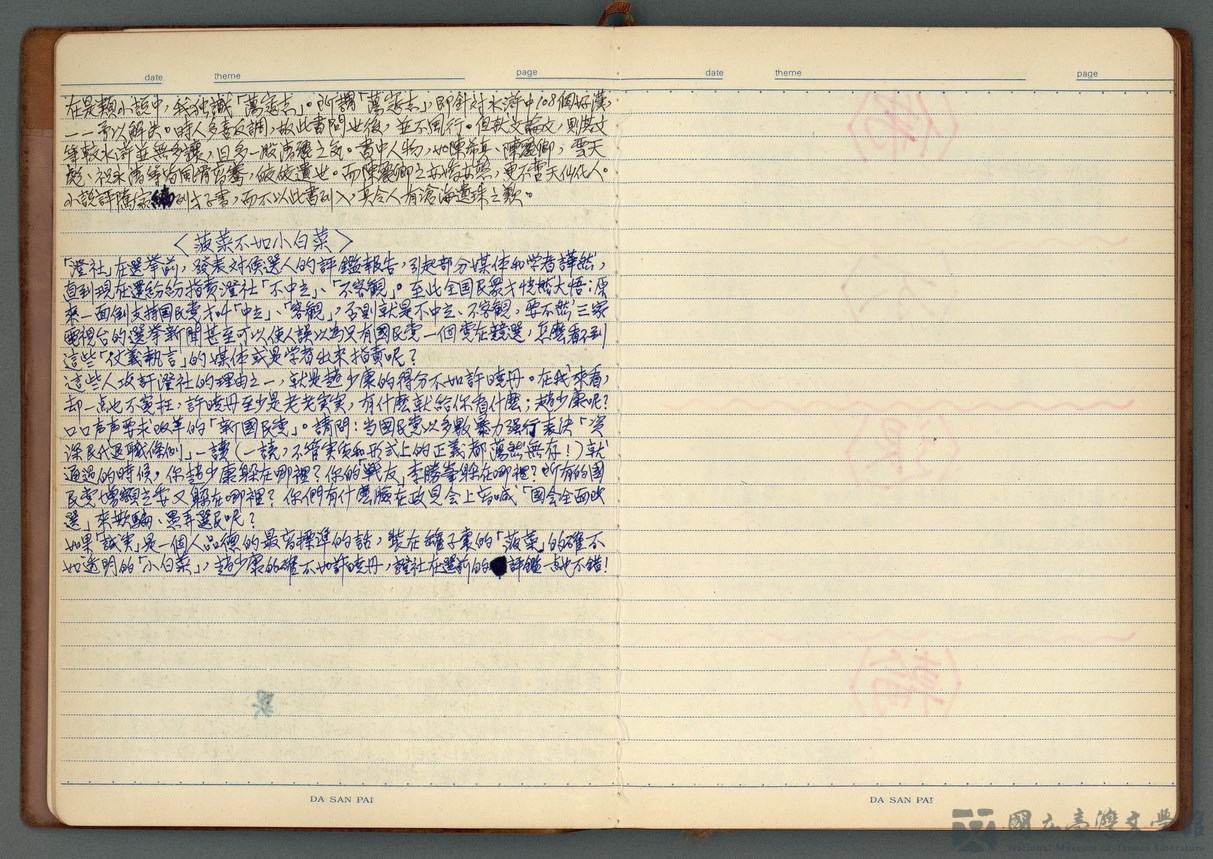 date theme page date theme page
在是類小說中,我独識「蕩寇志」。所謂「蕩寇志」,即針对水滸中108個好漢,
一一予以解决。時人多喜反調,故此書問世後,並不風行。但就文論文,則其文
筆較水滸並無多讓,且多一股清
書中人物,如陳希真、陳麗卿、雲天
彪、祝永清等皆風骨
而陳麗卿之
天仙化人。
小說評
列才子書,而不以此書列入,真令人有滄海遺珠之歎。
〈菠菜不如小白菜〉
「澄社」在選举前,發表对候選人的評鑑報告,引起部分媒体和学者譁然,
直到現在還紛紛指責澄社「不中立」、「不客觀」。至此全国民眾才恍然大悟:原
來一面倒支持國民党才叫「中立」、「客觀」,否則就是不中立、不客觀,要不然三家
電視台的選举新聞甚至可以使人誤以為只有國民党一個党在競選,怎麼看不到
這些「仗義執言」的媒体或是学者出來指責呢?
這些人攻訐澄社的理由之一,就是趙少康的得分不如許曉丹。在我來看,
却一点也不冤枉,許曉丹至少是老老实实,有什麼就給你看什麼;趙少康呢?
口口声声要求改革的「新國民党」。請問:当國民党以多数暴力強行表決「資
深民代退職條例」一讀(一讀,不管实质和形式上的正義都蕩然無存!)就
通過的時候,你趙少康躲在哪裡?你的戰友李勝峯躲在哪裡?所有的國
民党增額立委又躲在哪裡?你們有什麼臉在政見会上
喊「国会全面改
選」來欺騙、愚弄選民呢?
如果「誠实」是一個人品德的最高標準的話,裝在罐子裏的「菠菜」的確不
如透明的「小白菜」,趙少康的確不如許曉丹,證社在選前的評鑑一点也不錯!
DA SAN PAI DA SAN PAI
國立臺灣文學館
National Museum of Taiwan Literature